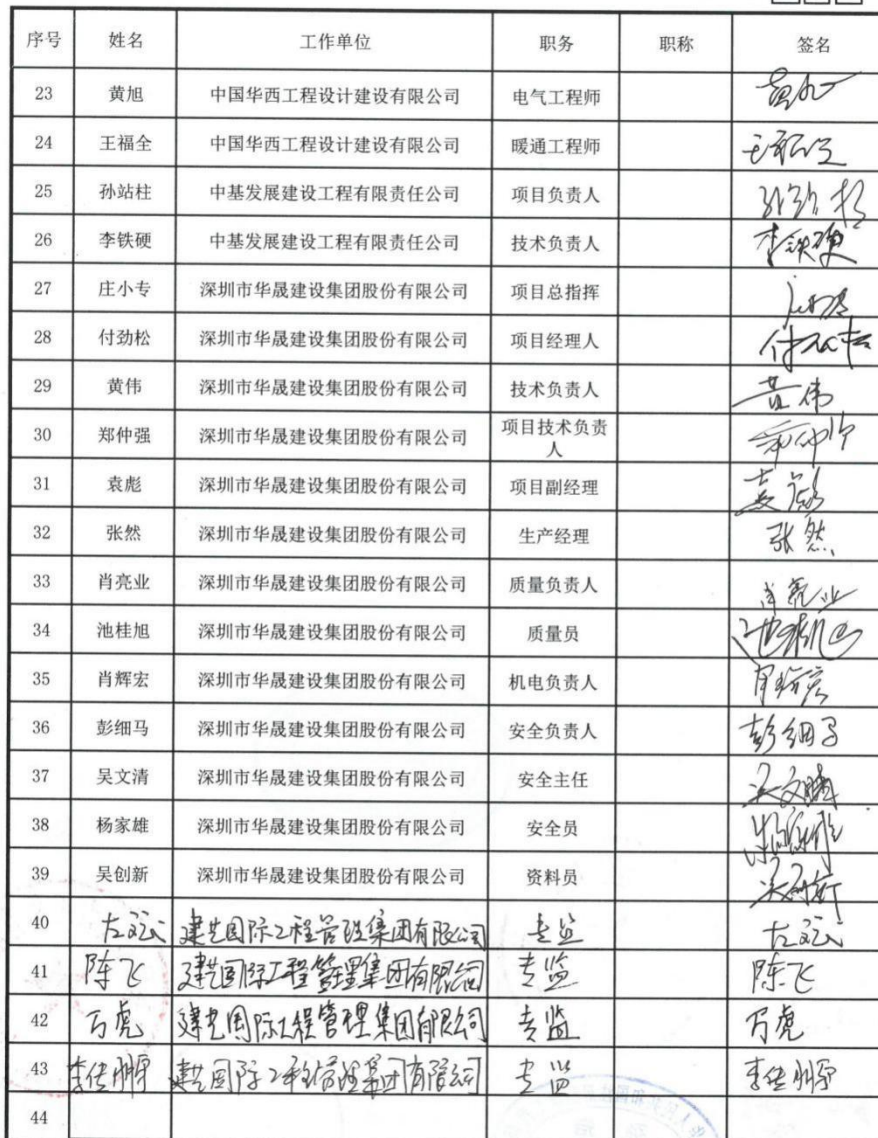 序号 姓名 工作单位 职务 职称 签名
23 黄旭 中国华西工程设计建设有限公司 电气工程师
24 王福全 中国华西工程设计建设有限公司 暖通工程师 王福全
25 孙站柱 中基发展建设工程有限责任公司 项目负责人
26 李铁硬 中基发展建设工程有限责任公司 技术负责人 李铁硬
27 庄小专 深圳市华晟建设集团股份有限公司 项目总指挥
28 付劲松 深圳市华晟建设集团股份有限公司 项目经理人 付劲松
29 黄伟 深圳市华晟建设集团股份有限公司 技术负责人 黄伟
30 郑仲强 深圳市华晟建设集团股份有限公司 项目技术负责
人
31 袁彪 深圳市华晟建设集团股份有限公司 项目副经理 袁彪
32 张然 深圳市华晟建设集团股份有限公司 生产经理 张然
33 肖亮业 深圳市华晟建设集团股份有限公司 质量负责人 肖亮业
34 池桂旭 深圳市华晟建设集团股份有限公司 质量员 池桂旭
35 肖辉宏 深圳市华晟建设集团股份有限公司 机电负责人 肖辉宏
36 彭细马 深圳市华晟建设集团股份有限公司 安全负责人 彭细马
37 吴文清 深圳市华晟建设集团股份有限公司 安全主任
38 杨家雄 深圳市华晟建设集团股份有限公司 安全员
39 吴创新 深圳市华晟建设集团股份有限公司 资料员 吴创新
40 建艺国际工程管理集团有限公司 专监
41 陈飞 建艺国际工程管理集团有限公司 专监 陈飞
42 万虎 建艺国际工程管理集团有限公司 专监 万虎
43 建艺国际工程管理集团有限公司 专监
44